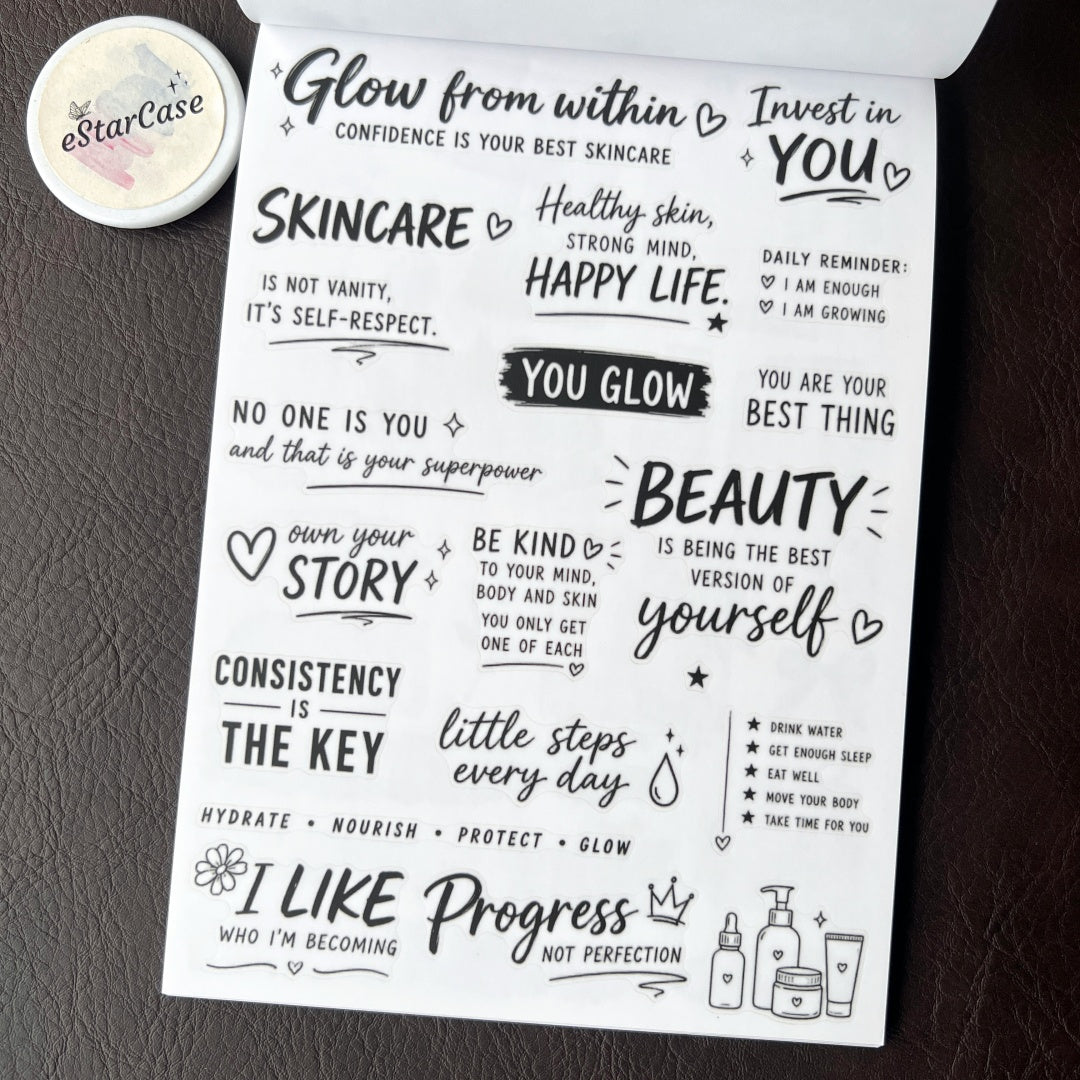 eStarCase
Glow from within
CONFIDENCE IS YOUR BEST SKINCARE
Invest in
YOU
SKINCARE
IS NOT VANITY,
IT'S SELF-RESPECT.
Healthy skin,
STRONG MIND,
HAPPY LIFE.
DAILY REMINDER:
I AM ENOUGH
I AM GROWING
YOU GLOW
YOU ARE YOUR
BEST THING
NO ONE IS YOU
and that is your superpower
BEAUTY
IS BEING THE BEST
VERSION OF
yourself
own your
STORY
BE KIND
TO YOUR MIND,
BODY AND SKIN
YOU ONLY GET
ONE OF EACH
CONSISTENCY
IS
THE KEY
little steps
every day
DRINK WATER
GET ENOUGH SLEEP
EAT WELL
MOVE YOUR BODY
TAKE TIME FOR YOU
HYDRATE • NOURISH • PROTECT • GLOW
I LIKE
WHO I'M BECOMING
Progress
NOT PERFECTION